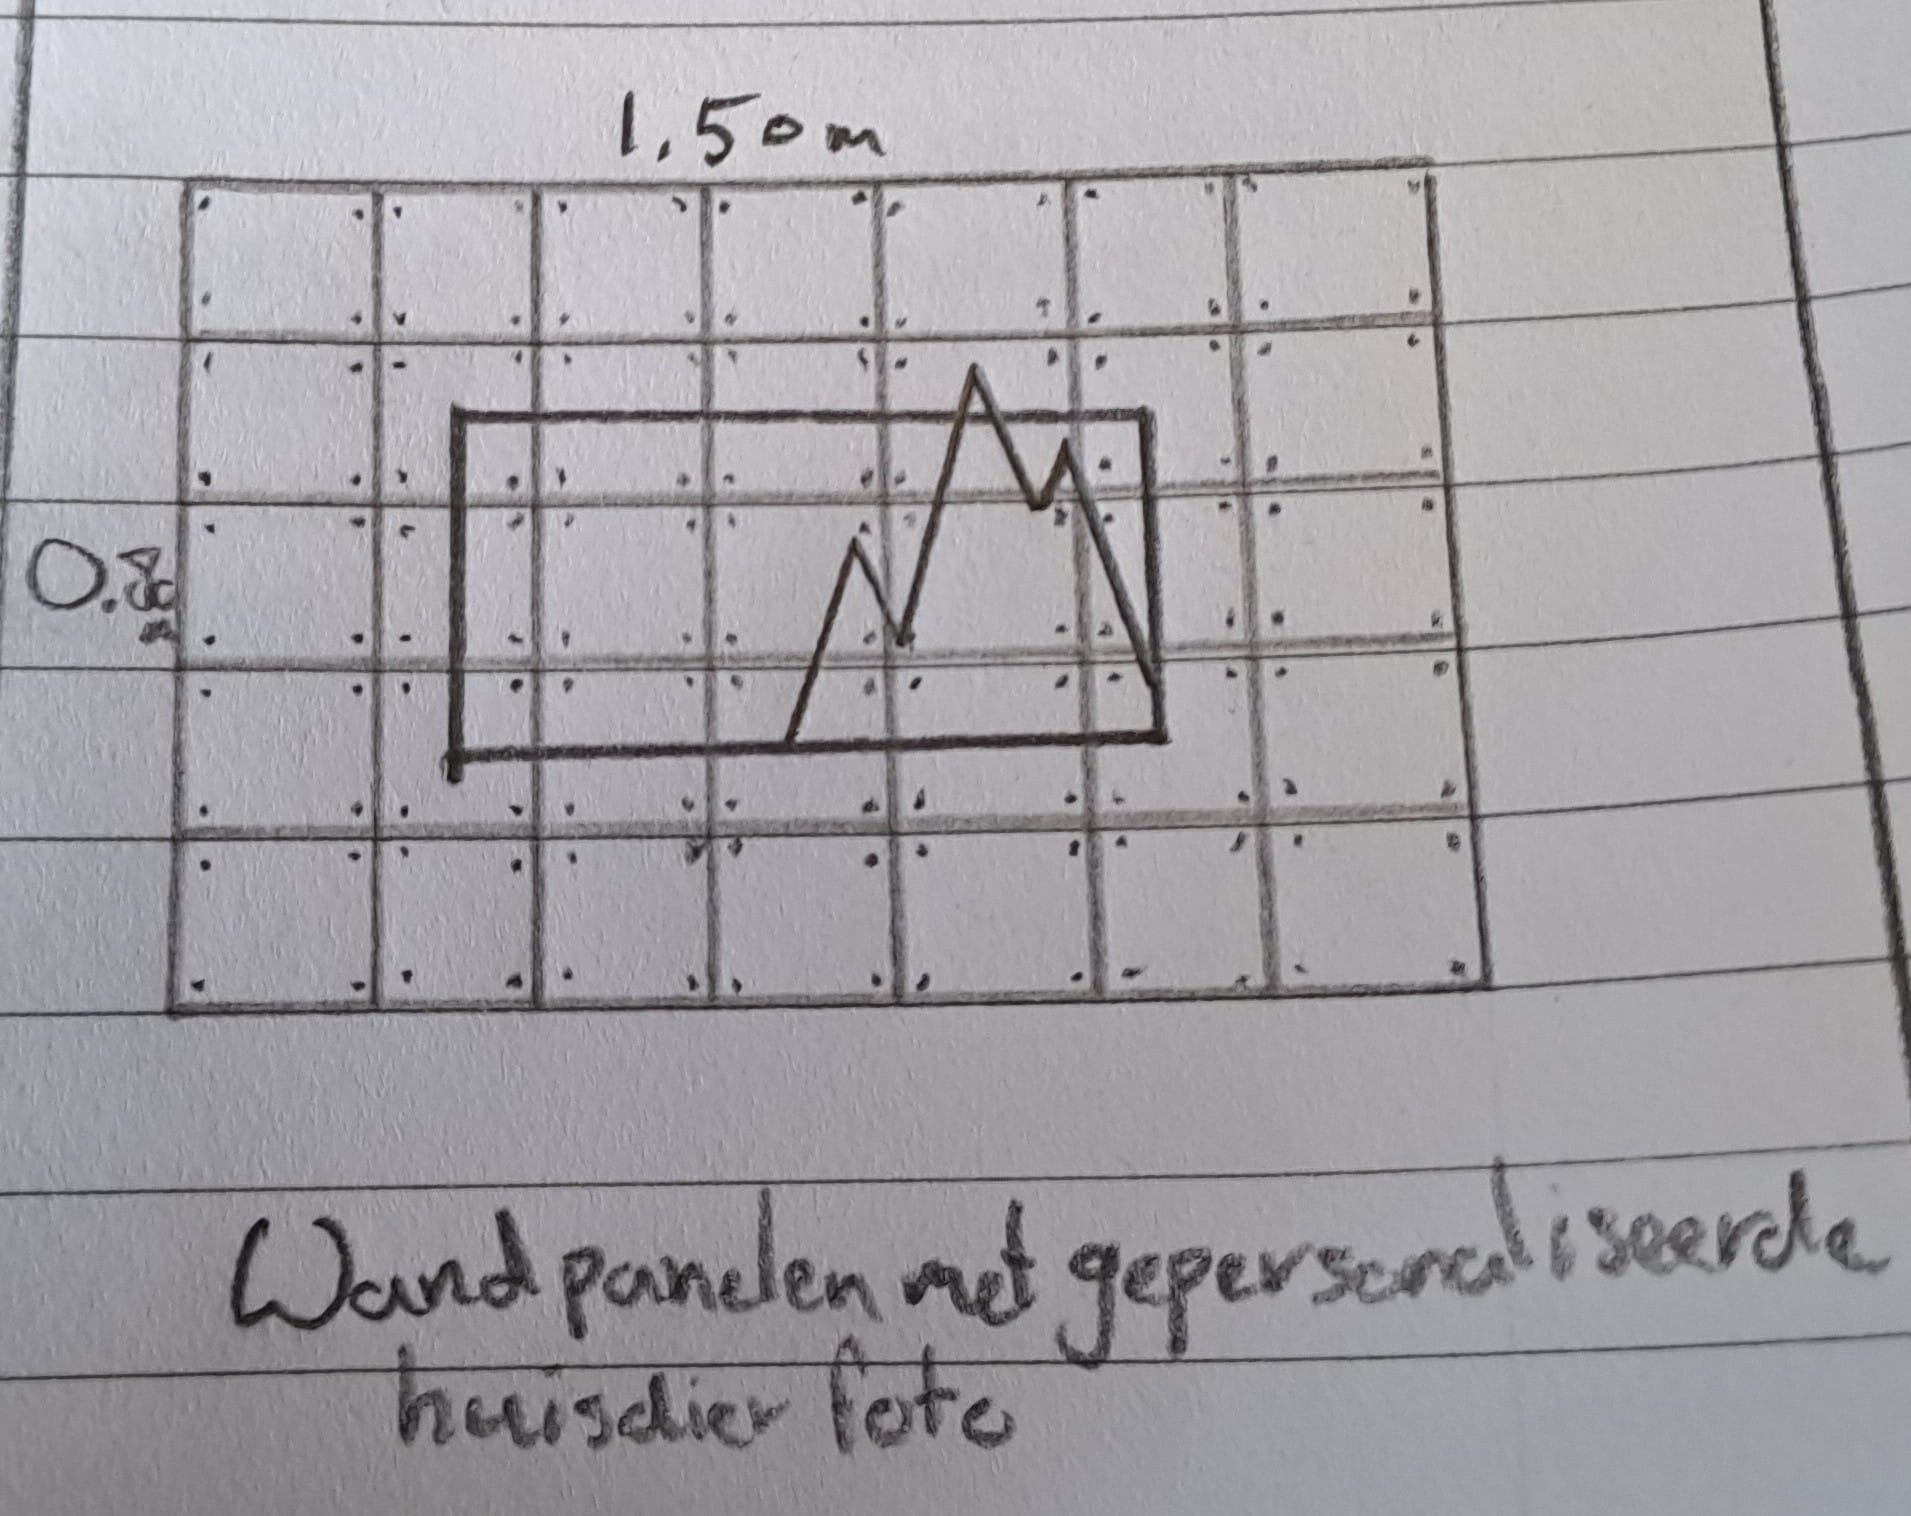 1.50m
0.80
m
Wandpanelen met gepersonaliseerde
huisdier foto